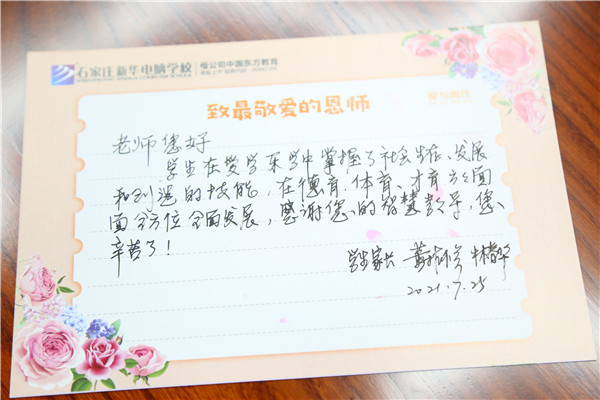 石家庄新华电脑学校 母公司中国东方教育
致最敬爱的恩师
老师您好
学生在贵学采学中掌握了社会生存、发展
和创造的技能,在德育、体育、才育方面
面全方位全面发展,感谢您的智慧教导,您、
辛苦了!
学生家长
2021.7.25